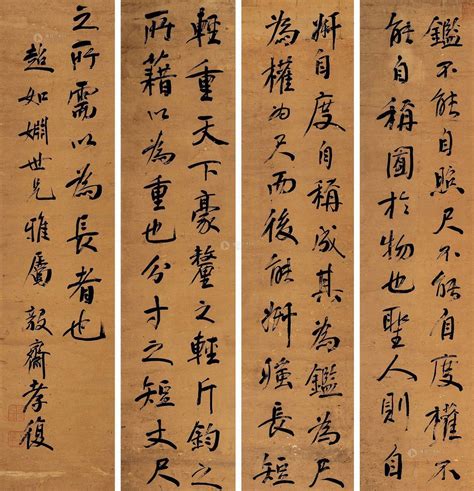 鑑不能自照尺不能自度權不
能自稱囿於物也聖人則自
妍自度自稱成其為鑑為尺
為權為尺而後能妍媸長短
輕重天下豪釐之輕斤鈞之
所藉以為重也分寸之短丈尺
之所需以為長者也
超如嫻世兄雅屬 毅齋孝復